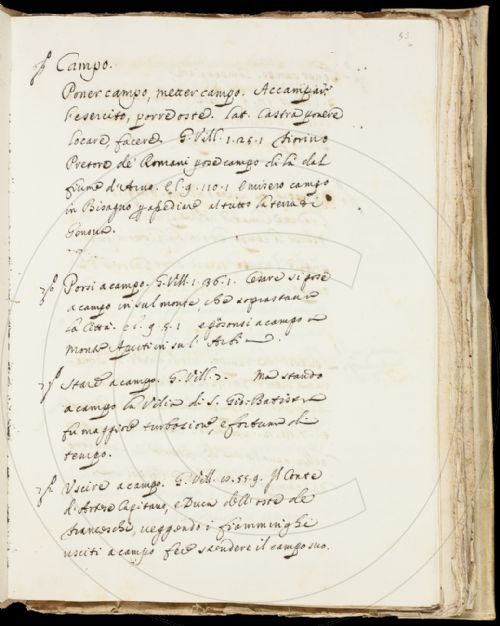 53
Campo.
Poner campo, metter campo. Accampar
l'esercito, porre oste. Lat. Castra ponere
locare, facere. G. Vill. 1. 25. 1 Fiorino
Pretore de' Romani pose campo di là dal
fiume d'Arno. e l. 9. 110. 1 e misero campo
in Bisagno p assediare al tutto la terra di
Genova.
Porsi a campo. G. Vill. 1. 36. 1. Cesare si pose
a campo in sul monte, che soprastava
la Città. e l. 9. 5. 1 e posonsi a campo a
Monte in sul
Stare a campo. G. Vill. 7. Ma stando
a campo la Vilia di S. Gio: Batista
fu maggiore turbazione, e fortuna di
tempo.
Uscire a campo. G. Vill. 10. 55. 9. Il Conte
d'Artese Capitano, e Duca dell'oste de
Franceschi, veggendo i fiamminghi
usciti a campo fece stendere il campo suo.